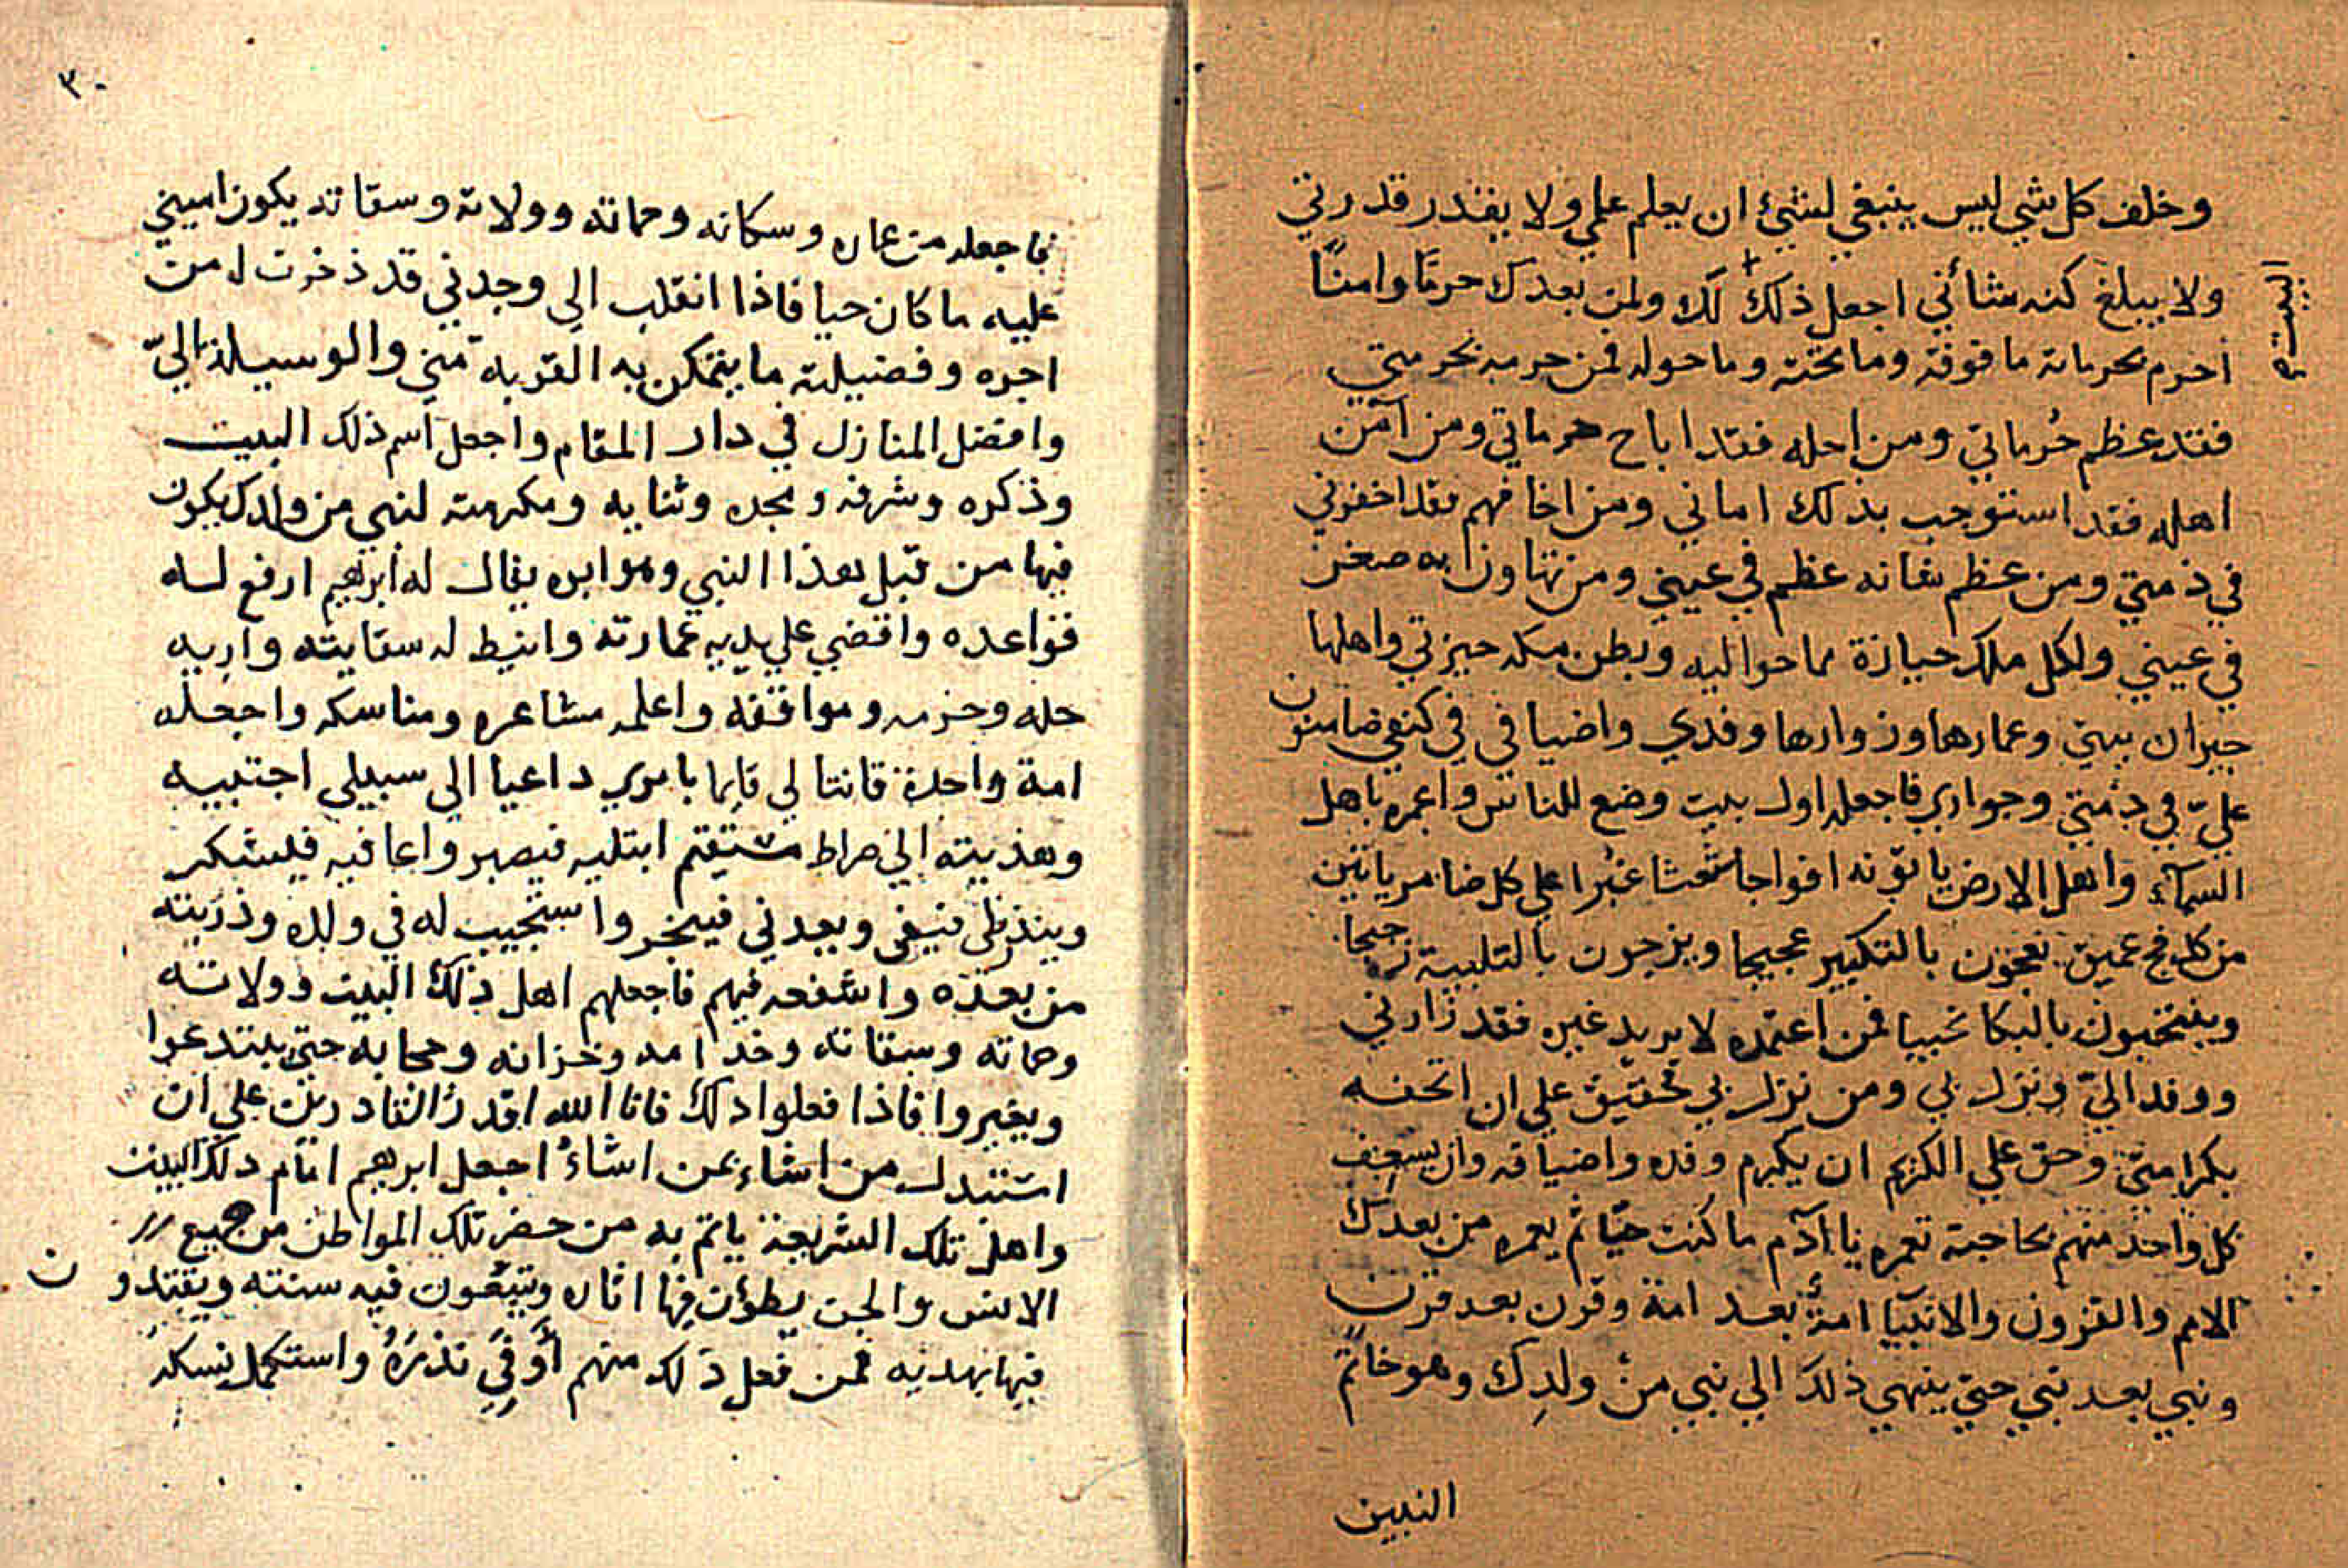 وخلف كل شي ليس ينبغي لشئ ان يعلم علمي ولا يقدر قدرتي
ولا يبلغ كنه شأني اجعل ذلك لك ولمن بعدك حرمًا وامنًا
البيت
احرم بحرماته ما فوقه وما تحته وما حوله فمن حرمه بحرمتي
فقد عظم حُرماتي ومن احله فقد اباح حرماتي ومن آمن
اهله فقد استوجب بذلك اماني ومن اخافهم فقد اخفرني
في ذمتي ومن عظم شانه عظم في عيني ومن تهاون به صغر
في عيني ولكل ملك حيازة مما حواليه وبطن مكه حيزتي واهلها
جيران بيتي وعمارها وزوارها وفدي واضيافي في كنفي ضامنون
عليّ في ذمتي وجواري فاجعله اول بيت وضع للناس واعمره باهل
السمآء واهل الارض ياتونه افواجا شعثا غبرا علي كل ضامر ياتين
من كل فج عميق يعجون بالتكبير عجيجا ويزجون بالتلبيه
وينتحبون بالبكا نحيبا فمن اعتمده لا يريد غيره فقد زارني
ووفد اليّ ونزل بي ومن نزل بي فحقيق علي ان اتحفه
بكرامتي وحق علي الكريم ان يكرم وفده واضيافه وان يسعف
كل واحد منهم بحاجته تعمره يا آدم ما كنت حيّا ثم يعمره من بعدك
الامم والقرون والانبيآ امةٌ بعد امة وقرن بعد قرن
ونبي بعد نبي حتي ينهي ذلك الي نبي من ولدك وهو خاتم
النبين
٣٠
فاجعله من عماره وسكانه وحماته وولاته وسقاته يكون اميني
عليه ما كان حيا فاذا انقلب الي وجدني قد ذخرت له من
اجره وفضيلته ما يتمكن به القربه مني والوسيلة اليّ
وافضل المنازل في دار المقام واجعل اسم ذلك البيت
وذكره وشرفه ومجده وثنايه ومكرمته لنبي من ولدك يكون
فيها من قبل هذا النبي وهو ابوه يقال له ابرهيم ارفع له
قواعده واقضي علي يديه عمارته وانيط له سقايته واريه
حله وحرمه ومواقفه واعلمه مشاعره ومناسكه واجعله
امة واحدة قانتا لي قايما بامري داعيا الي سبيلي اجتبيه
وهذيته الي صراط مستقيم ابتليه فيصبر واعافيه فليشكر
وينذر لي فيفي ويعدني فينجز واستجيب له في ولده وذريته
من بعده واشفعه فيهم فاجعلهم اهل ذلك البيت وولاته
وحماته وسقاته وخدامه وخزانه وحجابه حتي يبتدعوا
ويغيروا فاذا فعلوا ذلك فانا الله اقدر القادرين علي ان
استبدل من اشاء بمن اشاءُ اجعل ابرهيم امام ذلك البيت
واهل تلك الشريعة ياتم به من حضر تلك المواطن من جميع
الانس والجن يطؤن فيها اثاره ويتبعون فيه سنته ويقتدون
فيها بهديه فمن فعل ذلك منهم أَوفي نذرَهُ واستكمل نسكه